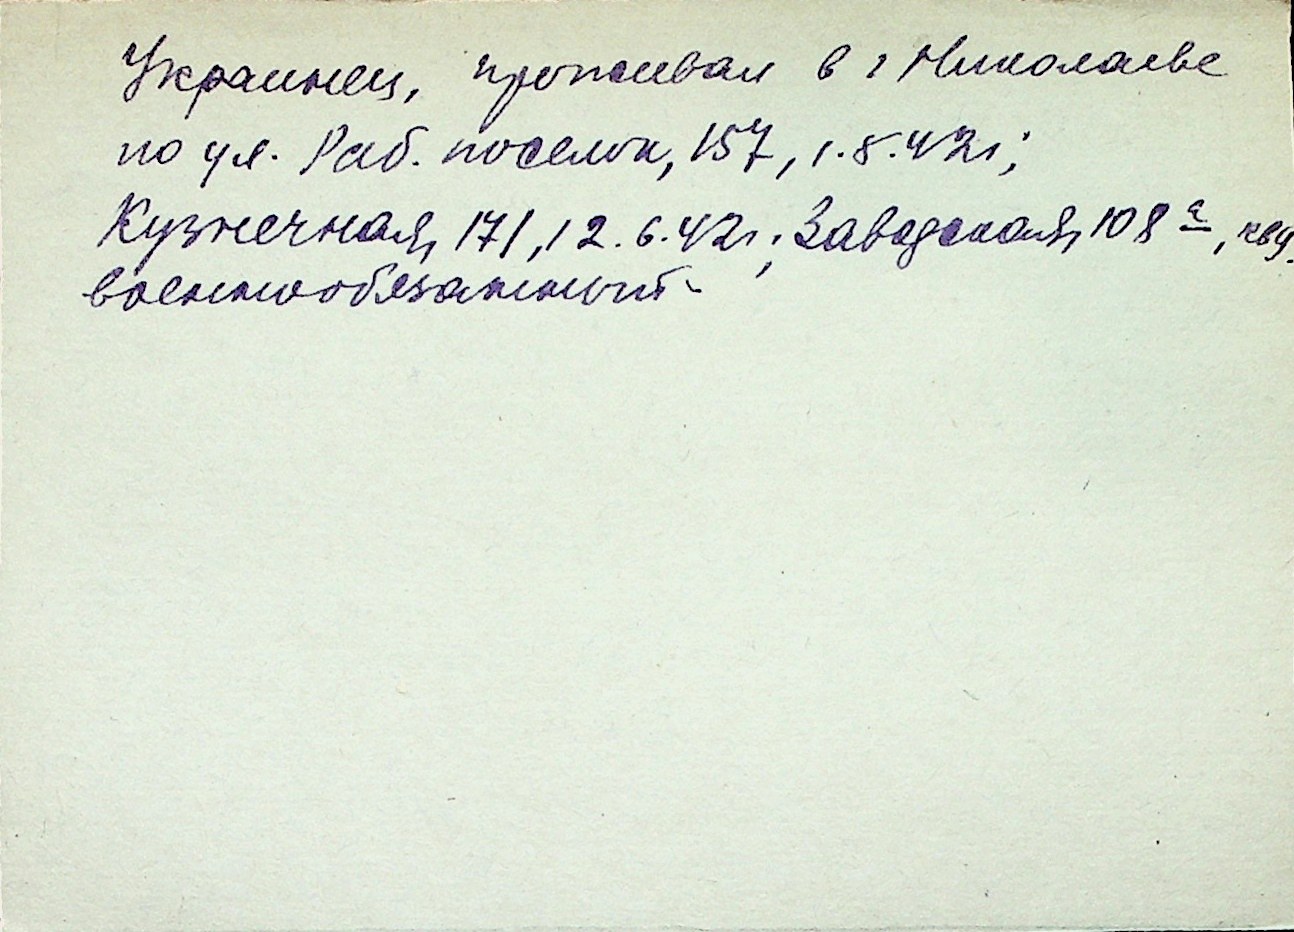 Украинец, проживал в г Николаеве
по ул. Раб. поселок, 157, 1.8.42г;
Кузнечная, 171, 12.6.42г; Заводская, 108 а,
военнообязанный